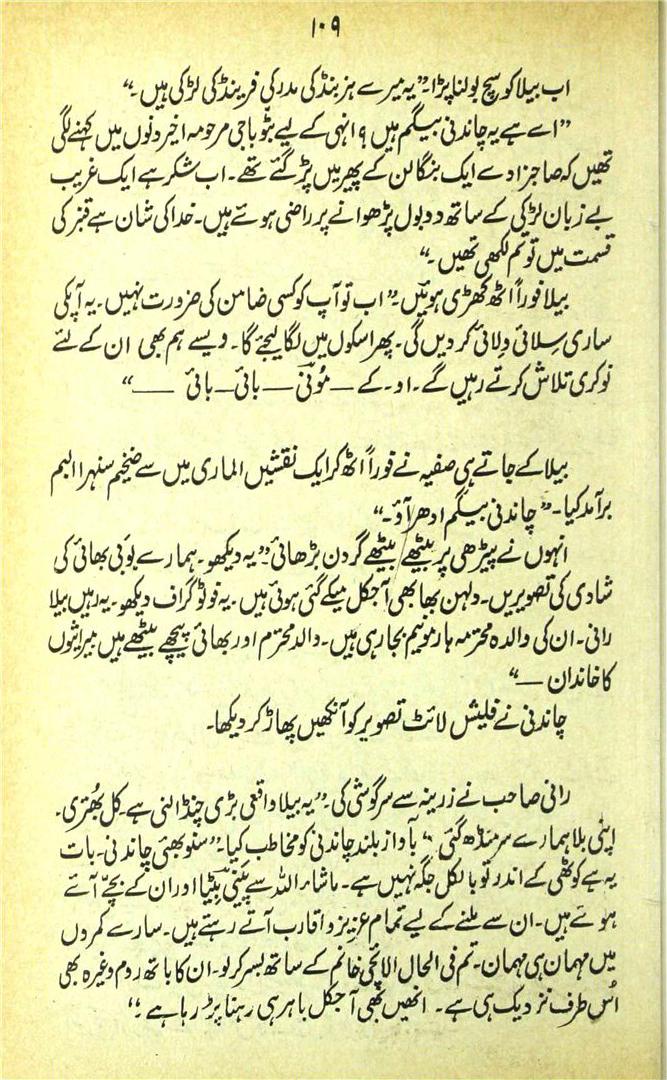 ۱۰۹
اب بیلا کو سچ بولنا پڑا۔ ”یہ میرے ہزبنڈ کی مدر کی فرینڈ کی لڑکی ہیں۔“
”اے ہے یہ چاندنی بیگم ہیں؟ انہی کے لیے بٹو باجی مرحومہ اخیر دنوں میں کہنے لگی
تھیں کہ صاحبزادے ایک بنگالن کے پھیر میں پڑ گئے تھے۔ اب شکر ہے ایک غریب
بے زبان لڑکی کے ساتھ دو بول پڑھوانے پر راضی ہوئے ہیں۔ خدا کی شان ہے قنبر کی
قسمت میں تو تم لکھی تھیں۔“
بیلا فوراً اٹھ کھڑی ہوئیں۔ ”اب تو آپ کو کسی ضامن کی ضرورت نہیں۔ یہ آپکی
ساری سِلائی وِلائی کر دیں گی۔ پھر اسکول میں لگا لیجئے گا۔ ویسے ہم بھی ان کے لئے
نوکری تلاش کرتے رہیں گے۔ او۔ کے — مُونی — بائی — بائی —“
بیلا کے جاتے ہی صفیہ نے فوراً اٹھ کر ایک نقشیں الماری میں سے ضخیم سنہرا البم
برآمد کیا۔ ”چاندنی بیگم ادھر آؤ۔“
انہوں نے پیڑھی پر بیٹھے بیٹھے گردن بڑھائی۔ ”یہ دیکھو۔ ہمارے بوبی بھائی کی
شادی کی تصویریں۔ دلہن بھابھی آجکل میکے گئی ہوئی ہیں۔ یہ فوٹو گراف دیکھو۔ یہ رہیں بیلا
رانی۔ ان کی والدہ محترمہ ہارمونیم بجا رہی ہیں۔ والد محترم اور بھائی پیچھے بیٹھے ہیں میراثیوں
کا خاندان —“
چاندنی نے فلیش لائٹ تصویر کو آنکھیں پھاڑ کر دیکھا۔
رانی صاحب نے زرینہ سے سرگوشی کی۔ ”یہ بیلا واقعی بڑی چنڈالنی ہے۔ کل بُھتری۔
اپنی بلا ہمارے سر منڈھ گئی۔“ بآواز بلند چاندنی کو مخاطب کیا۔ ”سنو بھئی چاندنی۔ بات
یہ ہے کوٹھی کے اندر تو بالکل جگہ نہیں ہے۔ ماشاء اللہ سے پینی بٹیا اور ان کے بچے آئے
ہوئے ہیں۔ ان سے ملنے کے لیے تمام عزیز و اقارب آتے رہتے ہیں۔ سارے کمروں
میں مہمان ہی مہمان۔ تم فی الحال الائچی خانم کے ساتھ بسر کر لو۔ ان کا باتھ روم وغیرہ بھی
اُس طرف نزدیک ہی ہے۔ انھیں بھی آجکل باہر ہی رہنا پڑ رہا ہے۔“